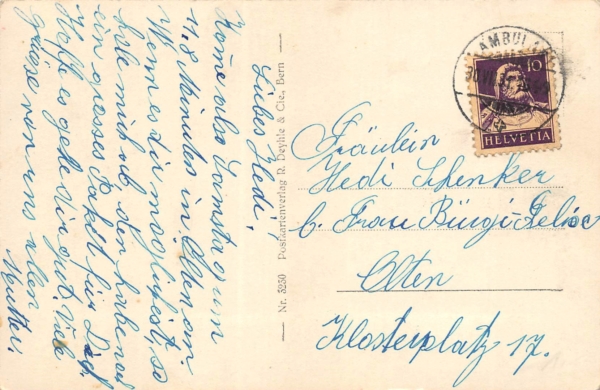 Liebes Hedi!
Kome also Samstag um
11.8 Minuten in Olten an
Wenn es dir möglich ist, so
hole mich ab, den habe noch
ein grosses Paket für Dich.
Hoffe es gehe dir gut. Viele
Grüsse von uns allen
Mutter.
Nr. 5250 Postkartenverlag R. Deyhle & Cie., Bern
AMBULANT
10
HELVETIA
Fräulein
Hedi Schenker
b. Frau Bürgi-
Olten
Klosterplatz 17.